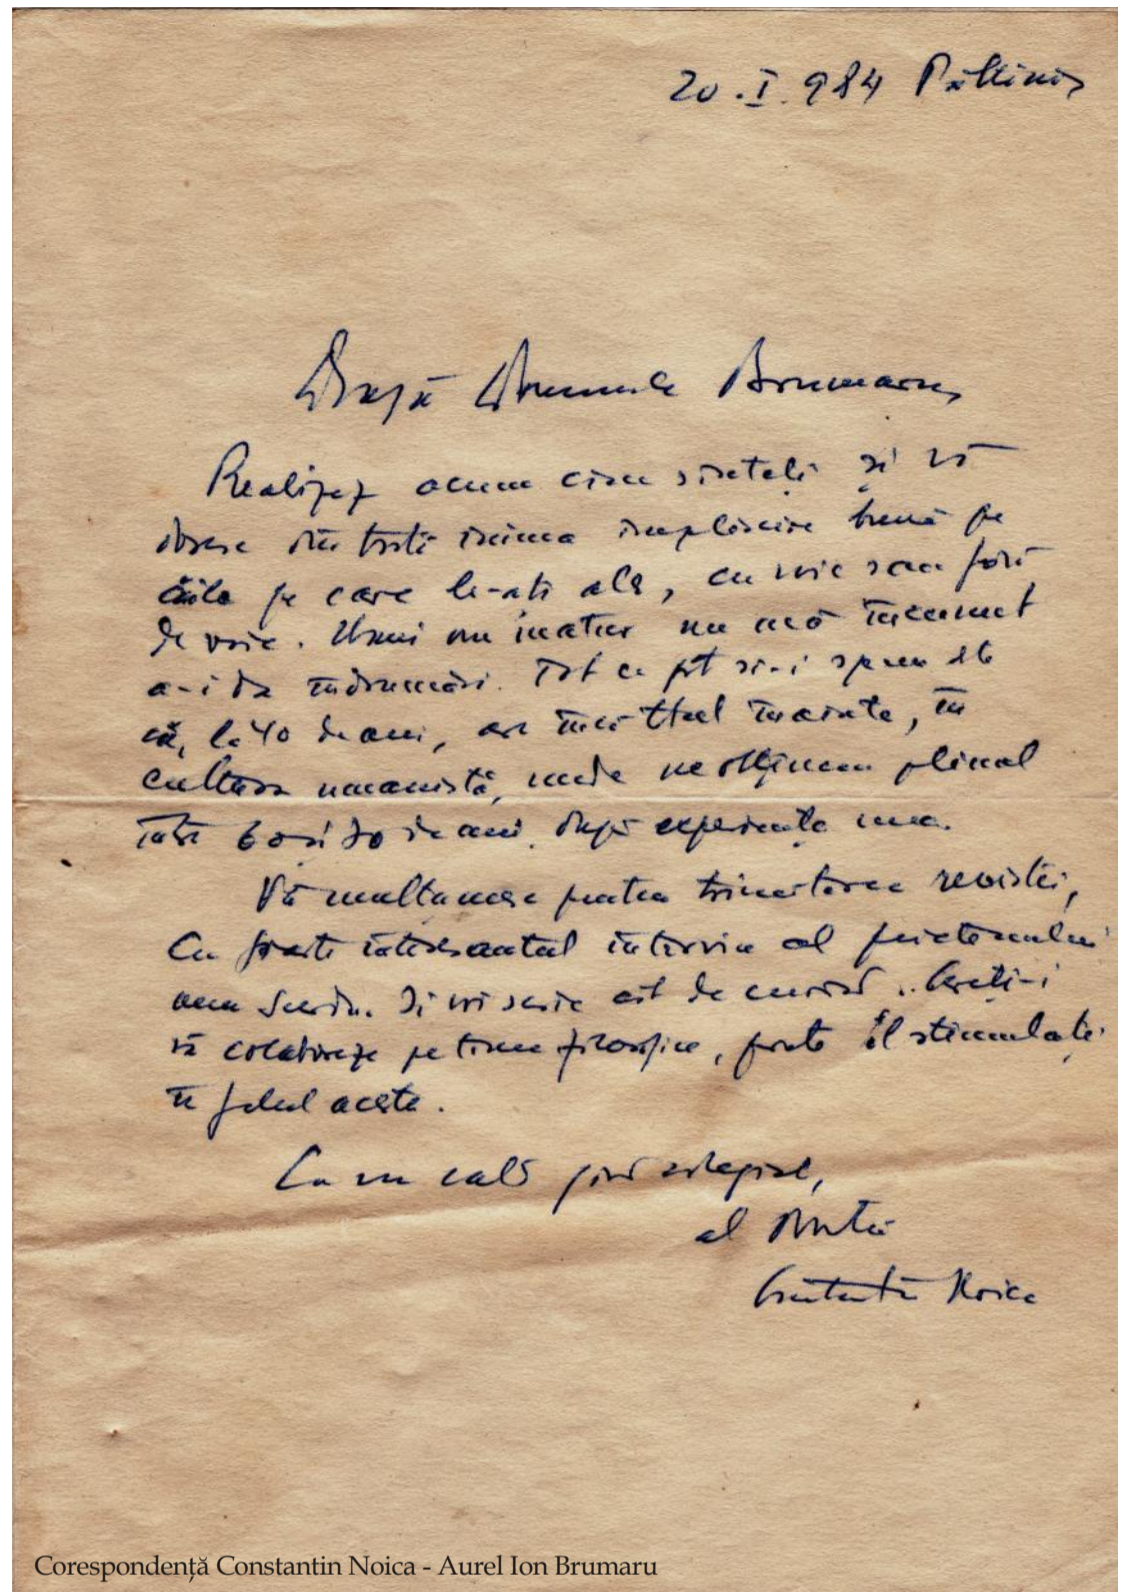 20.I.984 Păltiniș
Dragă Domnule Brumaru,
Realizez acum cine sînteți și vă
doresc din toată inima împlinire bună pe
căile pe care le-ați ales, cu voie sau fără
de voie. Unui om matur nu mă încumet
a-i da îndrumări. Tot ce pot să-i spun este
că, la 40 de ani, are încă totul înainte, în
cultura umanistă, unde ne obținem plinul
între 60 și 70 de ani, după experiența mea.
Vă mulțumesc pentru trimiterea revistei,
cu foarte interesantul interviu al prietenului
meu Surdu. Și voi scrie cît de curînd. Cereți-i
să colaboreze pe teme filosofice, poate îl stimulați
în felul acesta.
Cu un cald gînd colegial,
al Dvstră
Constantin Noica
Corespondență Constantin Noica - Aurel Ion Brumaru